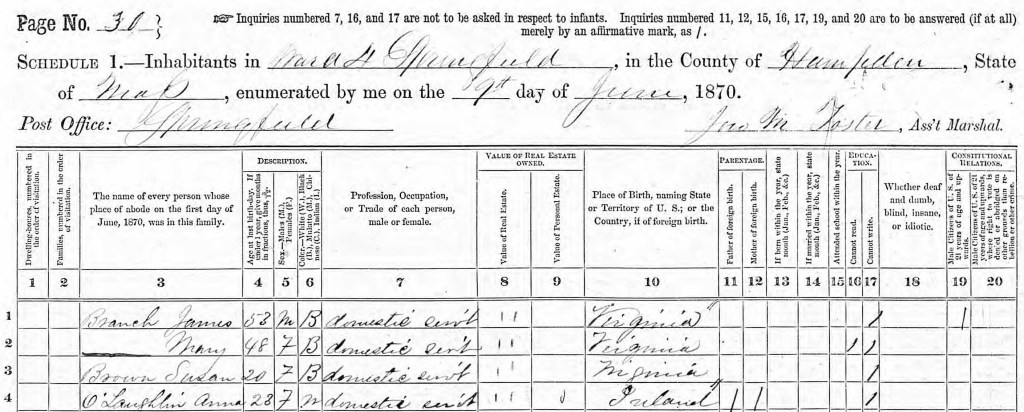 Page No. 30
☞ Inquiries numbered 7, 16, and 17 are not to be asked in respect to infants. Inquiries numbered 11, 12, 15, 16, 17, 19, and 20 are to be answered (if at all)
merely by an affirmative mark, as /.
SCHEDULE 1.—Inhabitants in Ward 4 Springfield, in the County of Hampden, State
of Mass, enumerated by me on the 9th day of June, 1870.
Post Office: Springfield Jno M Foster, Ass't Marshal.
Dwelling-houses, numbered in the order of visitation.
Families, numbered in the order of visitation.
The name of every person whose place of abode on the first day of June, 1870, was in this family.
DESCRIPTION.
Age at last birth-day. If under 1 year, give months in fractions, thus, 3/12.
Sex.—Males (M.), Females (F.)
Color.—White (W.), Black (B.), Mulatto (M.), Chinese (C.), Indian (I.)
Profession, Occupation, or Trade of each person, male or female.
VALUE OF REAL ESTATE OWNED.
Value of Real Estate.
Value of Personal Estate.
Place of Birth, naming State or Territory of U. S.; or the Country, if of foreign birth.
PARENTAGE.
Father of foreign birth.
Mother of foreign birth.
If born within the year, state month (Jan., Feb., &c.)
If married within the year, state month (Jan., Feb., &c.)
Attended school within the year.
EDUCATION.
Cannot read.
Cannot write.
Whether deaf and dumb, blind, insane, or idiotic.
CONSTITUTIONAL RELATIONS.
Male Citizens of U. S. of 21 years of age and upwards.
Male Citizens of U. S. of 21 years of age and upwards, where right to vote is denied or abridged on other grounds than rebellion or other crime.
1 2 3 4 5 6 7 8 9 10 11 12 13 14 15 16 17 18 19 20
1 Branch James 53 M B domestic serv't " Virginia / /
2 —— Mary 48 F B domestic serv't " Virginia / /
3 Brown Susan 20 F B domestic serv't " Virginia /
4 O'Laughlin Anna 28 F W domestic serv't " Ireland / / /